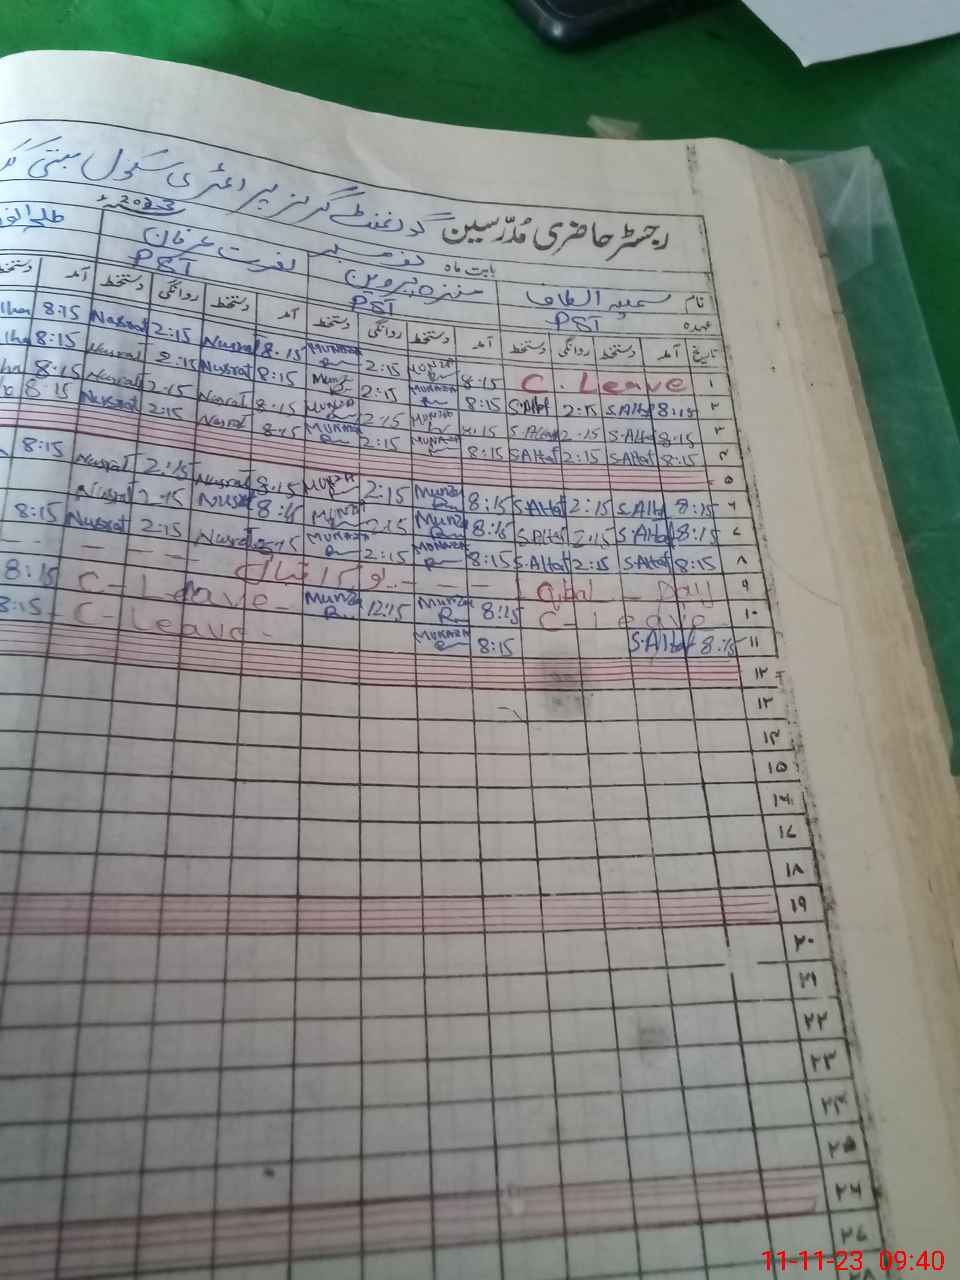 گورنمنٹ گرلز پرائمری سکول بستی
رجسٹر حاضری مُدرّسین
بابت ماہ نومبر 2023ء
نام سمیہ الطاف منزہ پروین نصرت عرفان
عہدہ PST PST PST
تاریخ آمد دستخط روانگی دستخط آمد دستخط روانگی دستخط آمد دستخط روانگی دستخط آمد دستخط
۱ C. Leave 8:15 MUNAZA 2:15 MUNAZA 8:15 Nusrat 2:15 Nusrat 8:15
۲ 8:15 S.Altaf 2:15 S.Altaf 8:15 MUNAZA 2:15 8:15 Nusrat 2:15 Nusrat 8:15
۳ 8:15 S.Altaf 2:15 S.Altaf 8:15 MUNAZA 2:15 MUNAZA 8:15 Nusrat 2:15 Nusrat 8:15
۴ 8:15 S.Altaf 2:15 S.Altaf 8:15 MUNAZA 2:15 MUNAZA 8:15 Nusrat 2:15 Nusrat 8:15
۵
۶ 8:15 S.Altaf 2:15 S.Altaf 8:15 Munaza 2:15 MUNAZA 8:15 Nusrat 2:15 Nusrat 8:15
۷ 8:15 S.Altaf 2:15 S.Altaf 8:15 Munaza 2:15 MUNAZA 8:15 Nusrat 2:15 Nusrat
۸ 8:15 S.Altaf 2:15 S.Altaf 8:15 MUNAZA 2:15 MUNAZA 8:15 Nusrat 2:15 Nusrat 8:15
۹ Iqbal Day - - - یوم اقبال - - - - -
۱۰ C- Leave 8:15 Munaza 12:15 Munaza C- Leave - 8:15
۱۱ 8:15 S.Altaf 8:15 MUNAZA C- Leave - 8:15
۱۲
۱۳
۱۴
۱۵
۱۶
۱۷
۱۸
۱۹
۲۰
۲۱
۲۲
۲۳
۲۴
۲۵
۲۶
۲۷
11-11-23 09:40